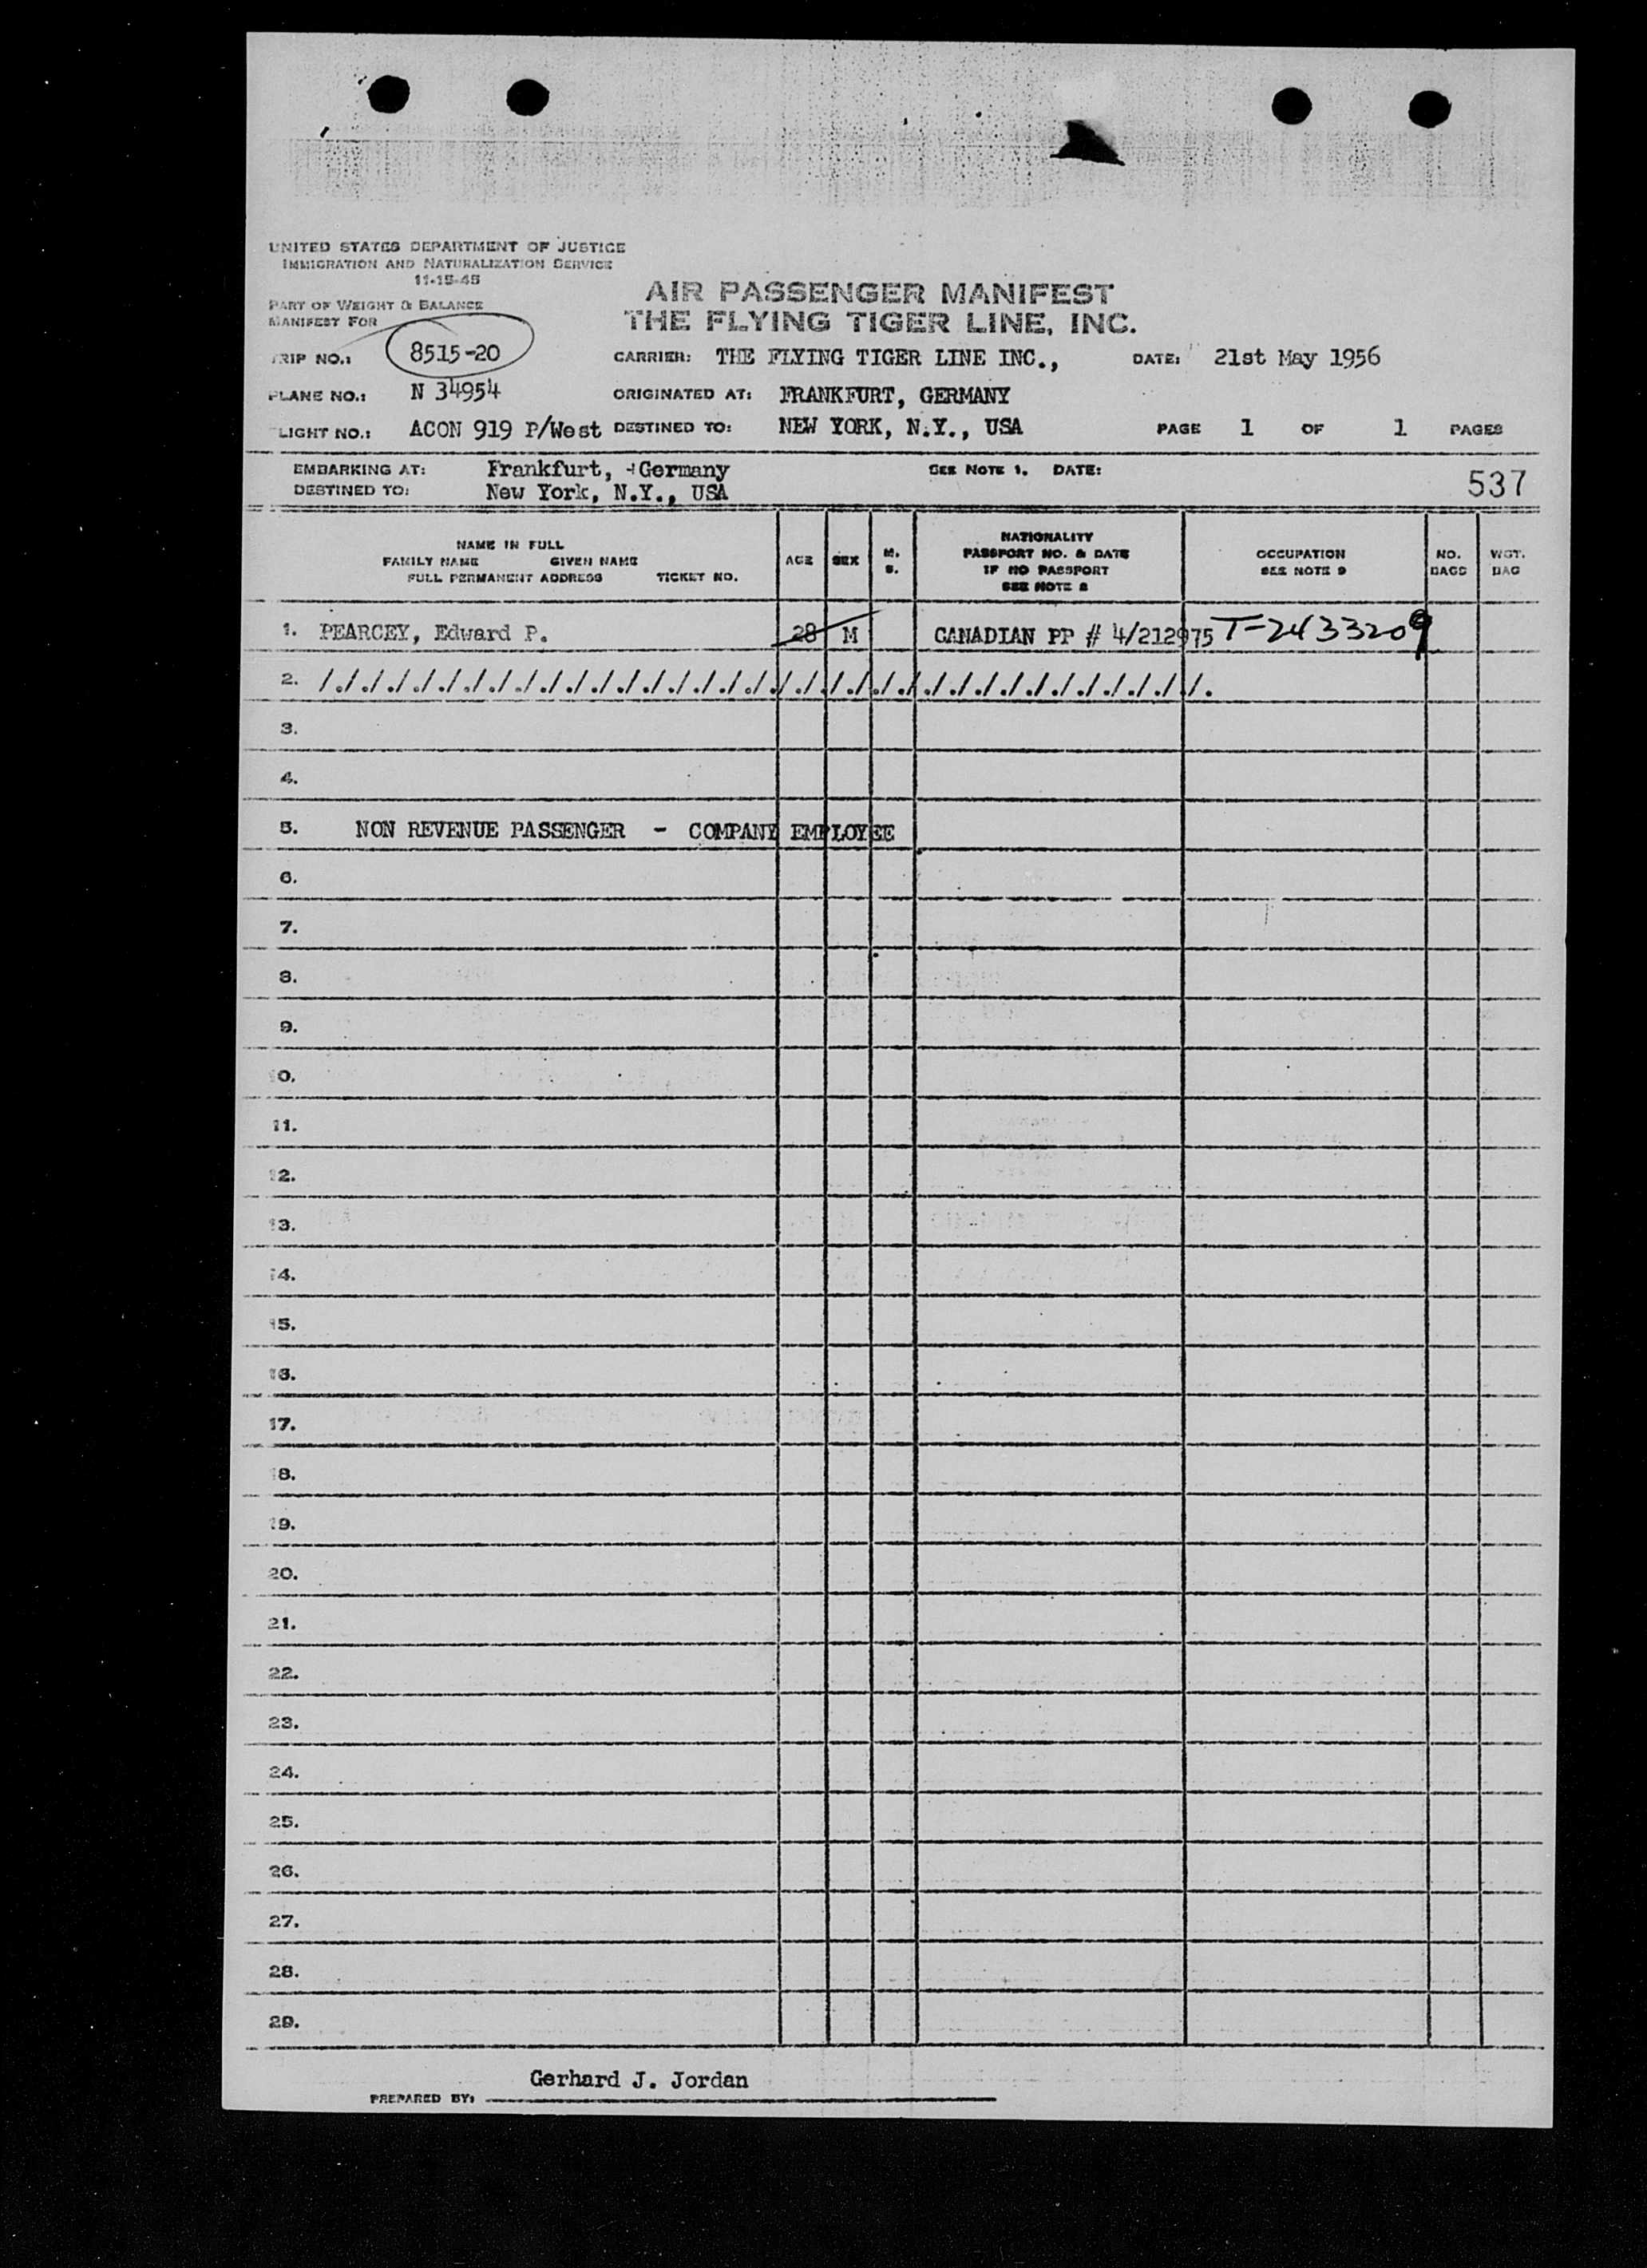 UNITED STATES DEPARTMENT OF JUSTICE
IMMIGRATION AND NATURALIZATION SERVICE
11-15-45
PART OF WEIGHT & BALANCE
MANIFEST FOR
AIR PASSENGER MANIFEST
THE FLYING TIGER LINE, INC.
TRIP NO.: 8515-20 CARRIER: THE FLYING TIGER LINE INC., DATE: 21st May 1956
PLANE NO.: N 34954 ORIGINATED AT: FRANKFURT, GERMANY
FLIGHT NO.: ACON 919 P/West DESTINED TO: NEW YORK, N.Y., USA PAGE 1 OF 1 PAGES
EMBARKING AT: Frankfurt, Germany SEE NOTE 1. DATE:
DESTINED TO: New York, N.Y., USA 537
NAME IN FULL
FAMILY NAME GIVEN NAME
FULL PERMANENT ADDRESS TICKET NO.
AGE SEX M. S.
NATIONALITY
PASSPORT NO. & DATE
IF NO PASSPORT
SEE NOTE 2
OCCUPATION
SEE NOTE 9
NO. BAGS
WGT. BAG
1. PEARCEY, Edward P. 28 M CANADIAN PP # 4/212975 T-2433209
2. /./././././././././././././././././././././././././././././././././.
3.
4.
5. NON REVENUE PASSENGER - COMPANY EMPLOYEE
6.
7.
8.
9.
10.
11.
12.
13.
14.
15.
16.
17.
18.
19.
20.
21.
22.
23.
24.
25.
26.
27.
28.
29.
Gerhard J. Jordan
PREPARED BY: